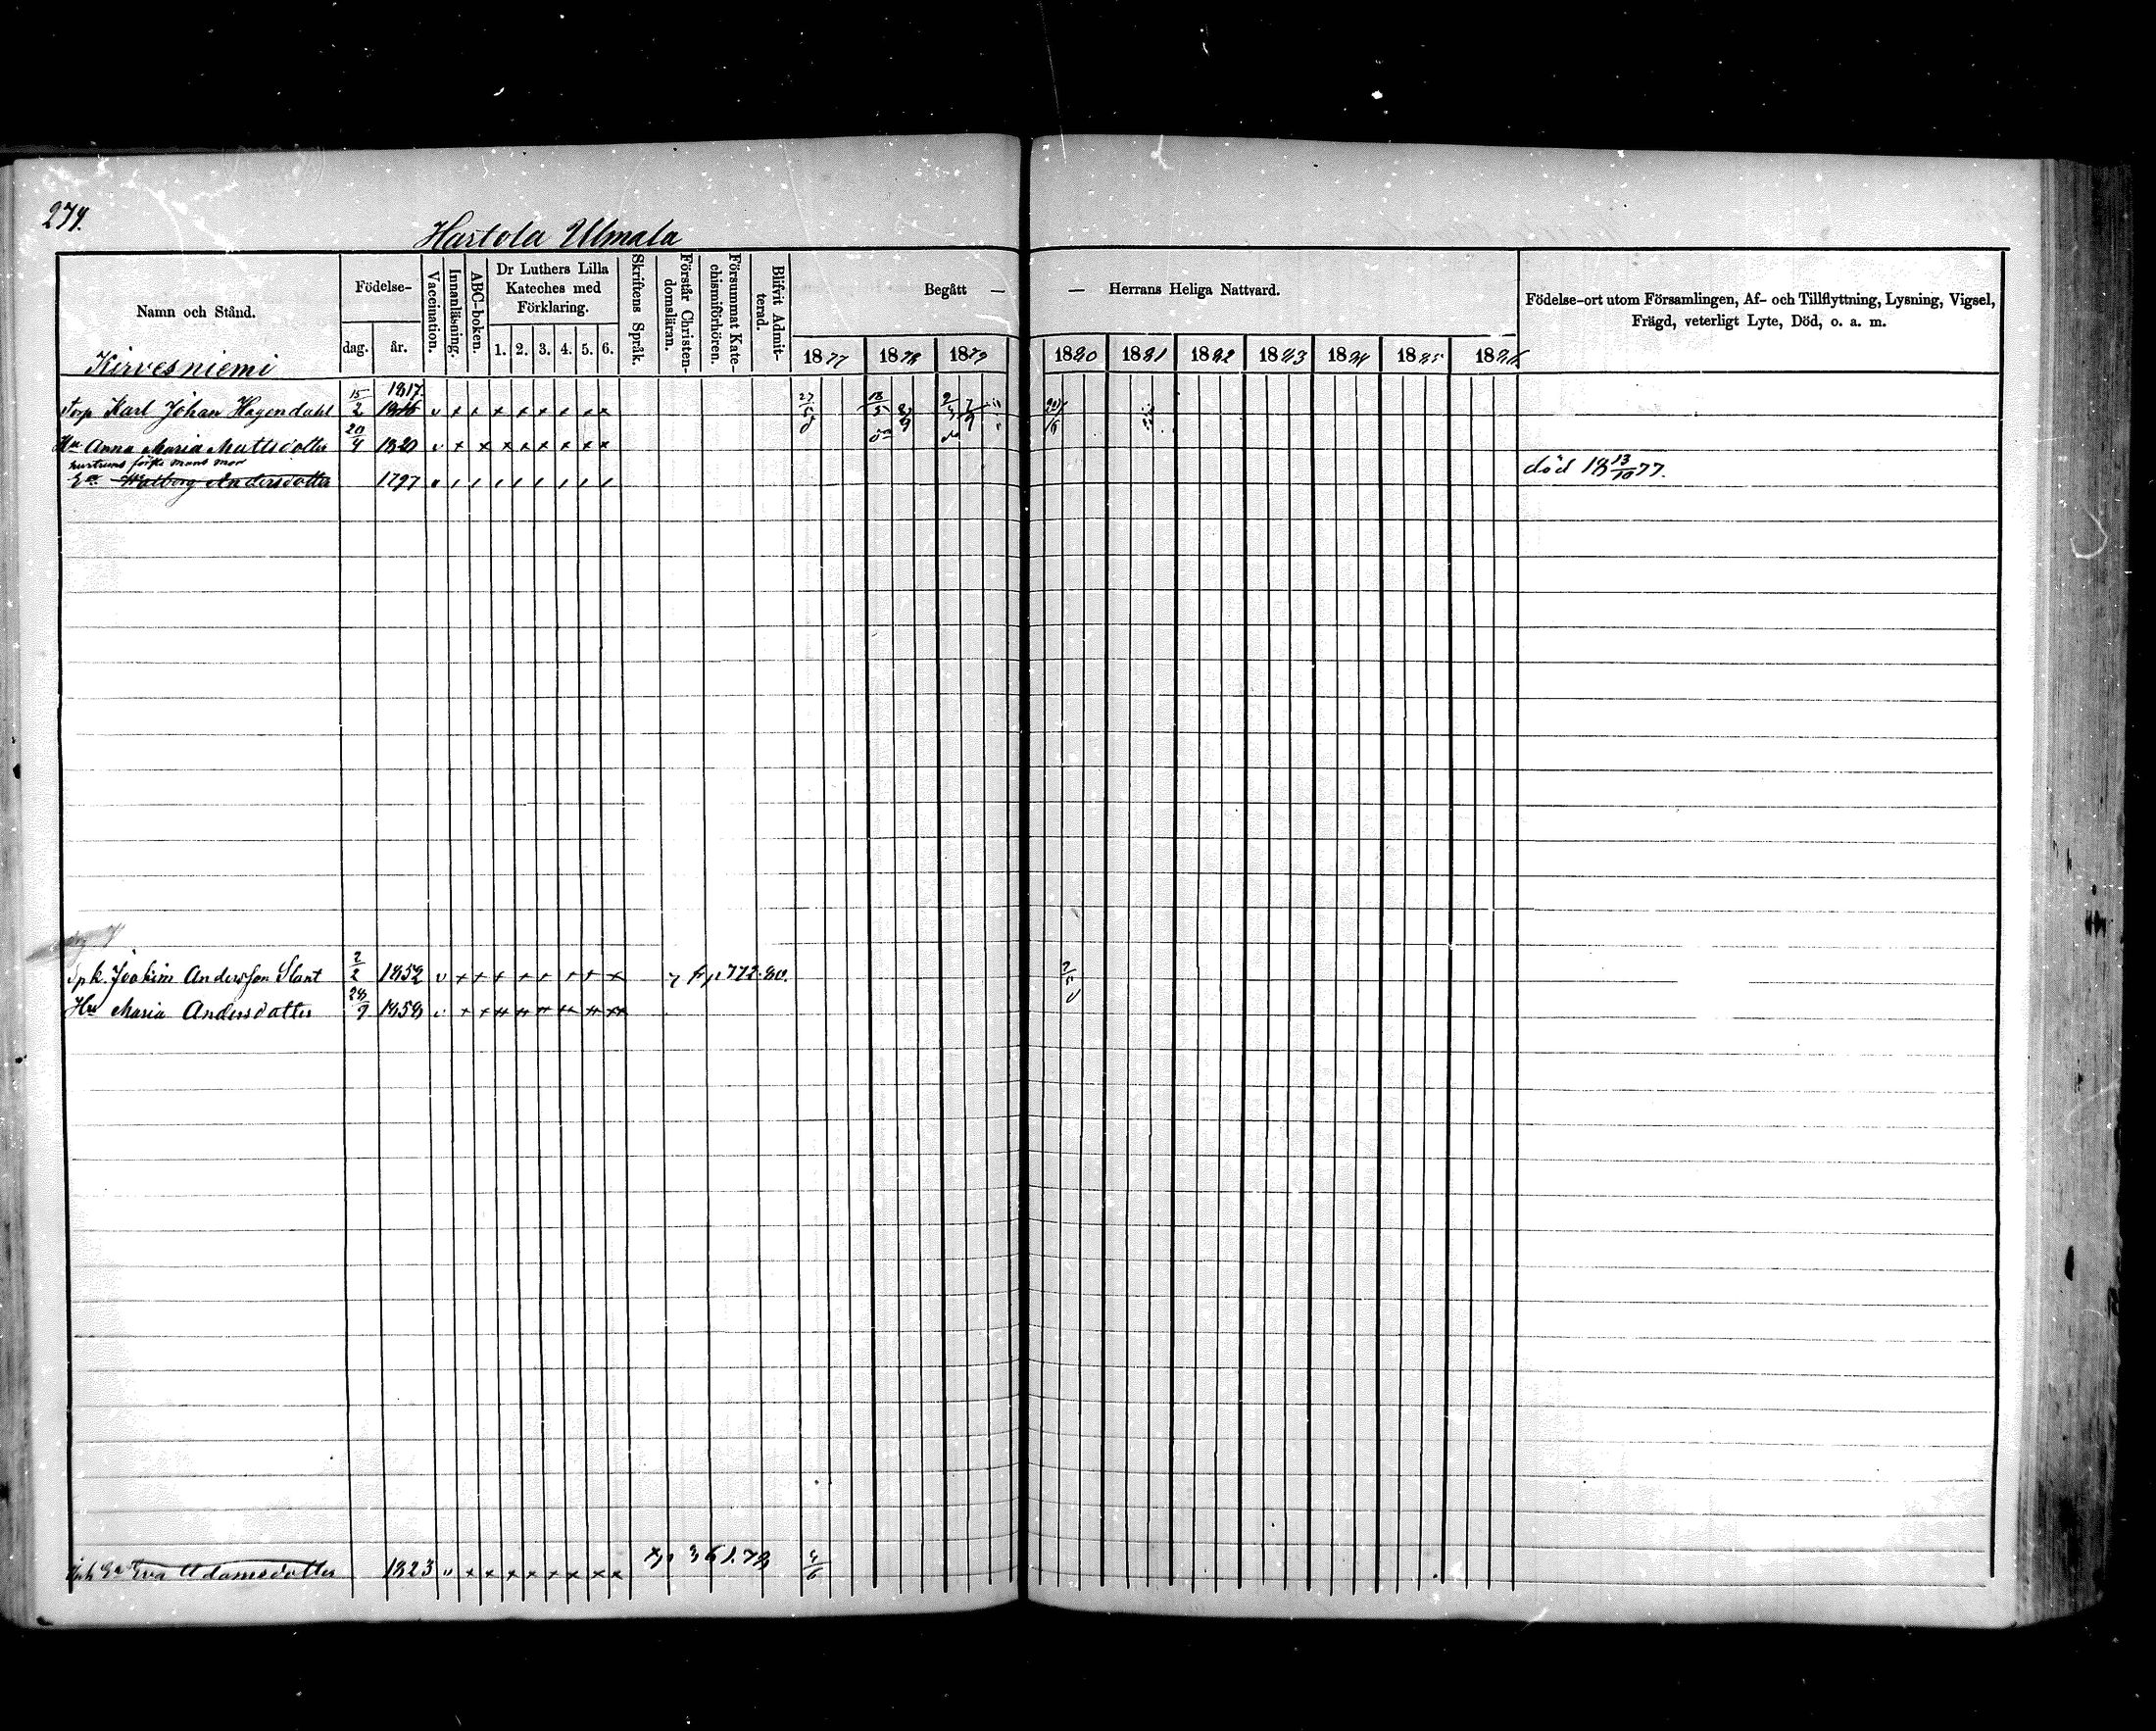 274.
Hartola Ulmala
Namn och Stånd.
Födelse-
dag.
år.
Vaccination.
Innanläsning.
ABC-boken.
Dr Luthers Lilla
Kateches med
Förklaring.
1. 2. 3. 4. 5. 6.
Skriftens Språk.
Förstår Christen-
domsläran.
Försummat Kate-
chismiförhören.
Blifvit Admit-
terad.
Begått — — Herrans Heliga Nattvard.
1877 1878 1879 1880 1881 1882 1883 1884 1885 1886
Födelse-ort utom Församlingen, Af- och Tillflyttning, Lysning, Vigsel,
Frägd, veterligt Lyte, Död, o. a. m.
Kirvesniemi
Torp Karl Johan Hagendahl 15/2 1817.
Hu Anna Maria Mattsdotter 20/4 1820
hustruns förste mans mor
Ea Walborg Andersdotter 1797 död 18 13/10 77.
Joakim Andersson Slant 2/2 1852 772.80.
Hu Maria Andersdotter 28/9 1858
Ea Eva Adamsdotter 1823 361.78